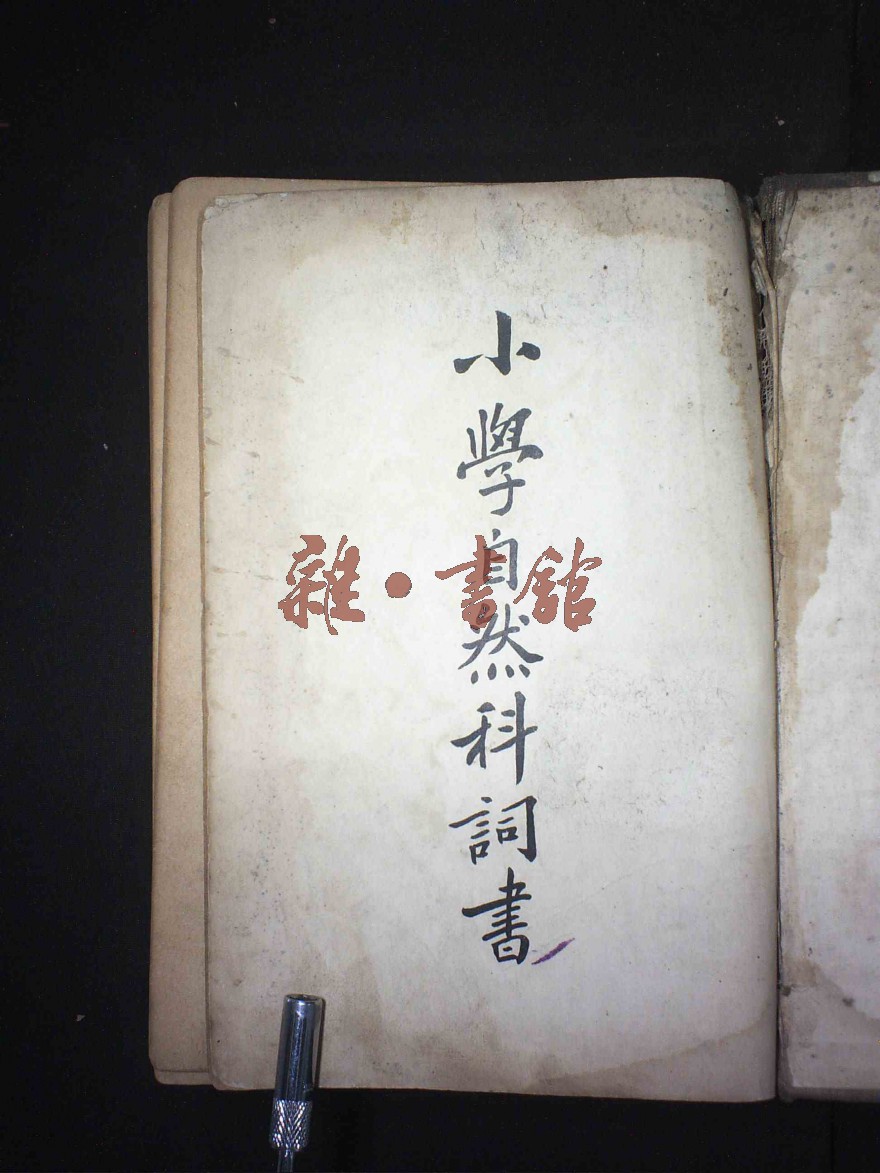 小學自然科詞書
雜·書館